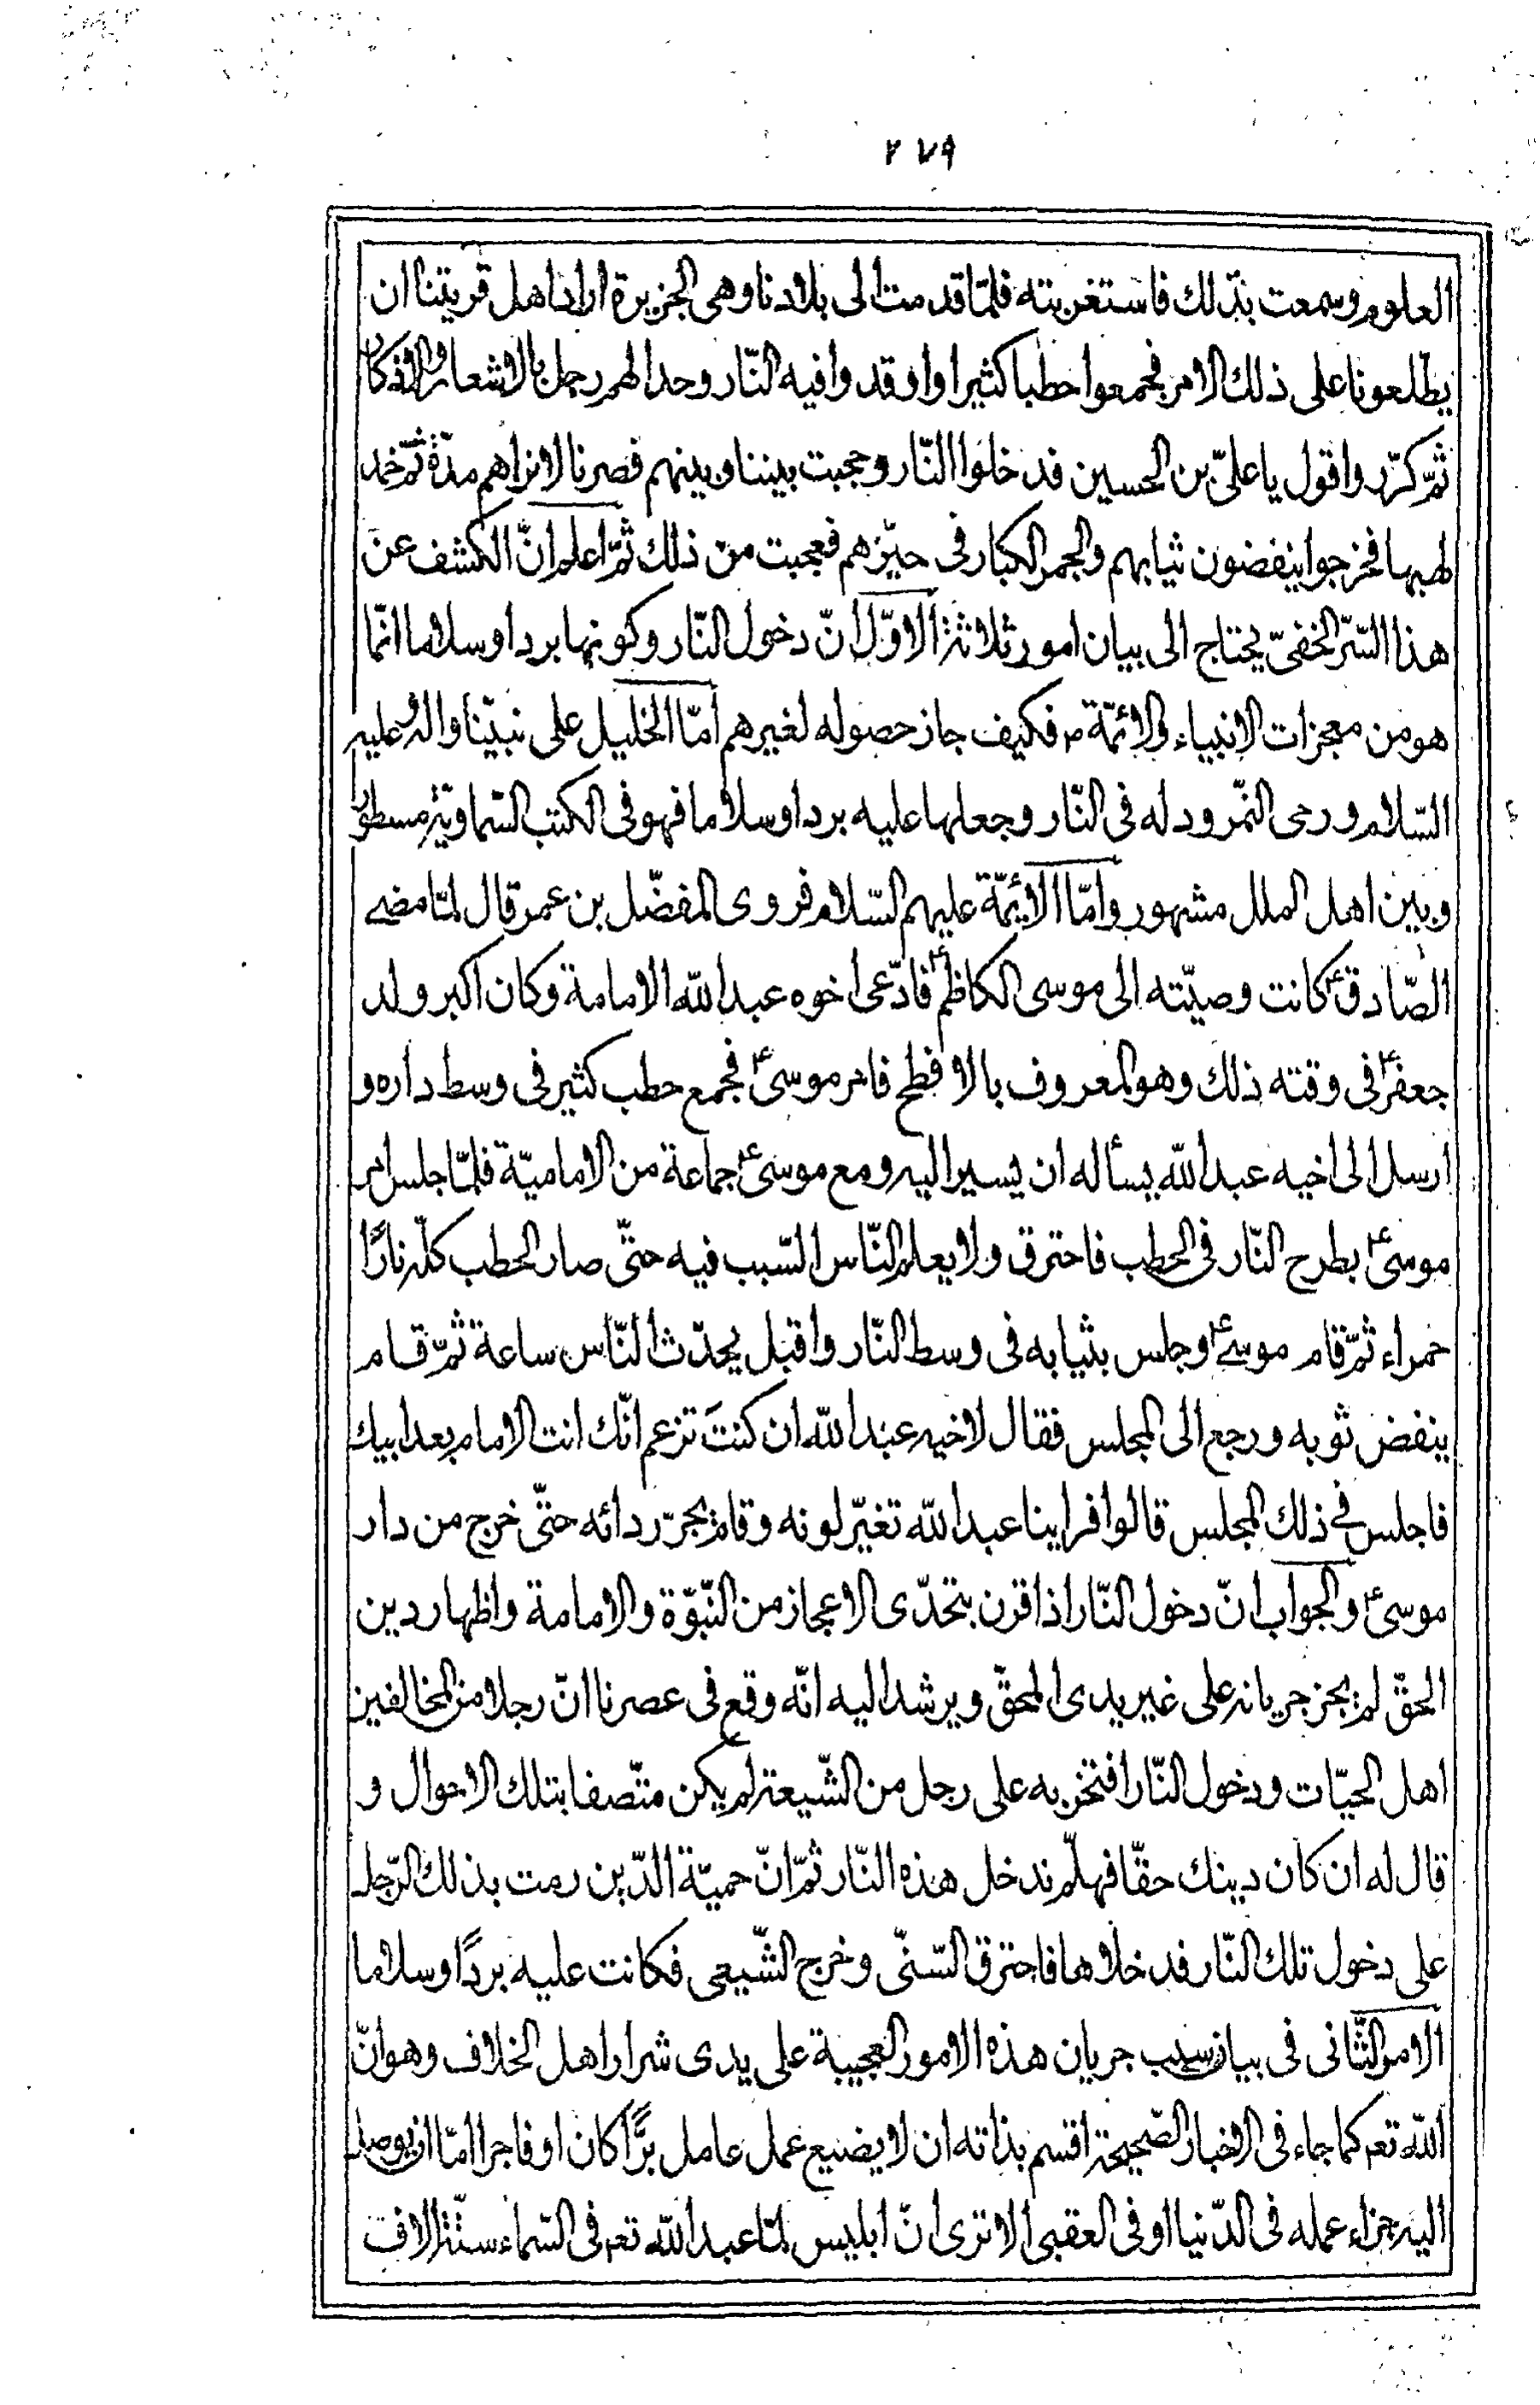 ٢٧٩
العلوم وسمعت بذلك فاستغربته فلمّا قدمت الى بلادنا وهى الجزيرة اراد اهل قريتنا ان
يطلعونا على ذلك الامر فجمعوا حطبا كثيرا واوقدوا فيه النّار وحدا لهم رجل بالاشعار والاذكار
ثمّ كرّر واقول يا علىّ بن الحسين فدخلوا النّار وحجبت بيننا وبينهم فصرنا لانراهم مدّة ثمّ خمد
لهبها فخرجوا ينفضون ثيابهم والجمر الكبار فى حيّزهم فعجبت من ذلك ثمّ اعلم انّ الكشف عن
هذا السّرّ الخفىّ يحتاج الى بيان امور ثلاثة الاوّل انّ دخول النّار وكونها بردا وسلاما انّما
هو من معجزات الانبياء والائمّة ع فكيف جاز حصوله لغيرهم امّا الخليل على نبيّنا واله وعليه
السّلام ورمى النّمرود له فى النّار وجعلها عليه بردا وسلاما فهو فى الكتب السّماويّة مسطور
وبين اهل الملل مشهور وامّا الائمّة عليهم السّلام فروى المفضّل بن عمر قال لمّا مضى
الصّادق ع كانت وصيّته الى موسى الكاظم ع فادّعى اخوه عبد الله الامامة وكان اكبر ولد
جعفر ع فى وقته ذلك وهو المعروف بالافطح فامر موسى ع فجمع حطب كثير فى وسط داره و
ارسل الى اخيه عبد الله يسأله ان يسير اليه ومع موسى ع جماعة من الاماميّة فلمّا جلس امر
موسى ع بطرح النّار فى الحطب فاحترق ولا يعلم النّاس السّبب فيه حتّى صار الحطب كلّه نارًا
حمراء ثمّ قام موسى ع وجلس بثيابه فى وسط النّار واقبل يحدّث النّاس ساعة ثمّ قام
ينفض ثوبه ورجع الى المجلس فقال لاخيه عبد الله ان كنتَ تزعم انّك انت الامام بعد ابيك
فاجلس فى ذلك المجلس قالوا فراينا عبد الله تغيّر لونه وقام يجرّ ردائه حتّى خرج من دار
موسى ع والجواب انّ دخول النّار اذا قرن بتحدّى الاعجاز من النّبوّة والامامة واظهار دين
الحقّ لم يجز جريانه على غير يدى المحقّ ويرشد اليه انّه وقع فى عصرنا انّ رجلا من المخالفين
اهل الحيّات ودخول النّار افتخر به على رجل من الشّيعة لم يكن متّصفا بتلك الاحوال و
قال له ان كان دينك حقّا فهلّم ندخل هذه النّار ثمّ انّ حميّة الدّين رمت بذلك الرّجل
على دخول تلك النّار فدخلاها فاحترق السّنّى وخرج الشّيعى فكانت عليه بردًا وسلاما
الامر الثّانى فى بيان سبب جريان هذه الامور العجيبة على يدى شرار اهل الخلاف وهو انّ
الله تعم كما جاء فى الاخبار الصّحيحة اقسم بذاته ان لا يضيع عمل عامل برًّا كان او فاجرا امّا ان يوصل
اليه جزاء عمله فى الدّنيا او فى العقبى الا ترى انّ ابليس لمّا عبد الله تعم فى السّماء ستّة الاف